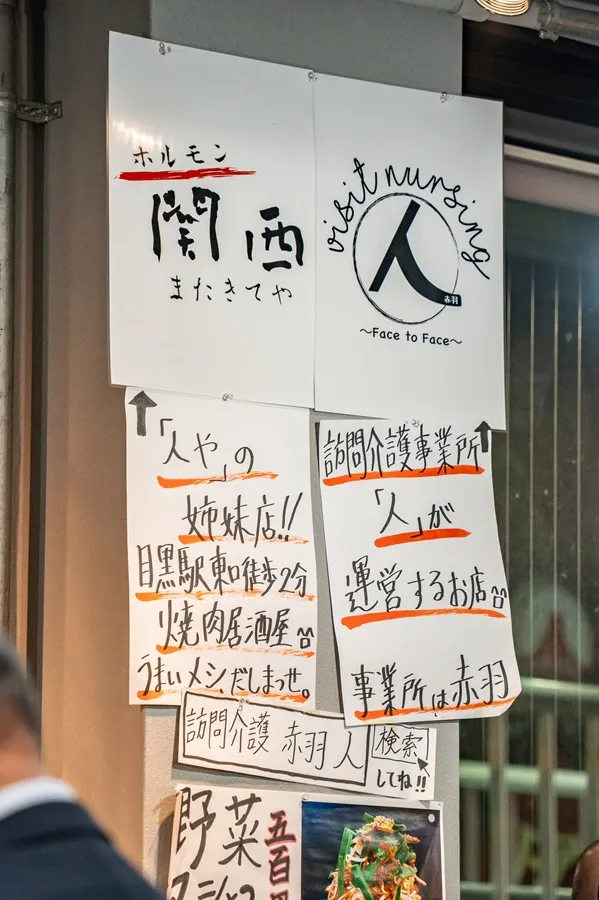 ホルモン
関西
またきてや
visit nursing
人
赤羽
～Face to Face～
「人や」の
姉妹店!!
目黒駅東口徒歩2分
焼肉居酒屋
うまいメシ、だしまっせ。
訪問介護事業所
「人」が
運営するお店
事業所は赤羽
訪問介護 赤羽 人
検索
してね!!
野菜
五百